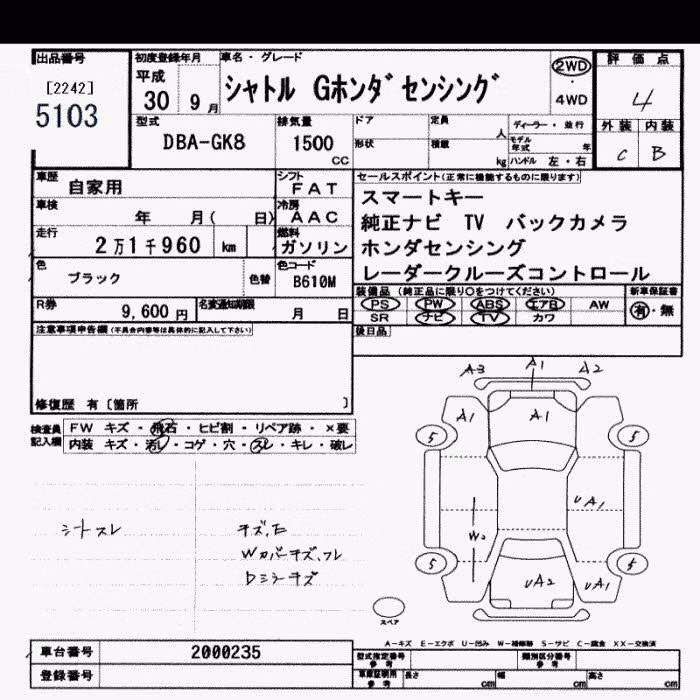 出品番号
[2242]
5103
初度登録年月
平成
30 9 月
車名・グレード
シャトル Gホンダセンシング
2WD
4WD
評価点
4
外装 内装
C B
型式
DBA-GK8
排気量
1500
CC
ドア
形状
定員
人
積載
kg
ディーラー・並行
モデル年式 年
ハンドル 左・右
車歴
自家用
シフト
FAT
車検
年 月( 日)
冷房
AAC
走行
2万1千960 km
燃料
ガソリン
色
ブラック
色替
色コード
B610M
R券
9,600 円
名変通知期限
月 日
セールスポイント(正常に機能するものに限ります)
スマートキー
純正ナビ TV バックカメラ
ホンダセンシング
レーダークルーズコントロール
装備品 (純正品に限り○をつけてください)
新車保証書
PS PW ABS エアB AW
SR ナビ TV カワ
有・無
後日品
注意事項申告欄(不具合内容等は具体的に記入して下さい)
修復歴 有〔箇所 〕
検査員記入欄
FW キズ・飛石・ヒビ割・リペア跡・×要
内装 キズ・汚レ・コゲ・穴・スレ・キレ・破レ
シートスレ
キズ、E
Wカバーキズ、スレ
Dミラーキズ
A3 A1 A2
A1 A1
5 5
W2
UA1
5 5
UA2 UA1
スペア
A-キズ E-エクボ U-凹み W-補修跡 S-サビ C-腐食 XX-交換済
車台番号
2000235
登録番号
型式指定番号
参考
類別区分番号
参考
車庫証明用
参考
長さ cm 幅 cm 高さ cm